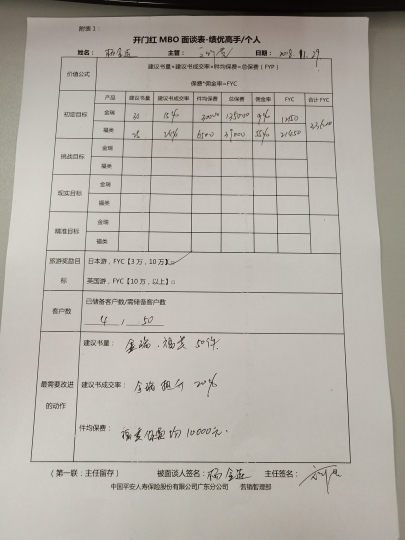 附表1：
开门红 MBO 面谈表-绩优高手/个人
姓名： 主管： 日期：2018.11.29
价值公式 建议书量*建议书成交率*件均保费=总保费（FYP）
保费*佣金率=FYC
产品 建议书量 建议书成交率 件均保费 总保费 佣金率 FYC 合计FYC
初定目标 金瑞 31 15% 30000 135000 9%
福类 24 25% 6500 39000 55% 21450
挑战目标 金瑞
福类
现实目标 金瑞
福类
精准目标 金瑞
福类
旅游奖励目标 日本游，FYC【3万，10万】
英国游，FYC【10万，以上】□
客户数 已储备客户数/需储备客户数
4 / 50
最需要改进的动作 建议书量： 金瑞、福类 50件.
建议书成交率： 金瑞提升 20%
件均保费： 福类保费均10000元.
（第一联：主任留存） 被面谈人签名： 主任签名：
中国平安人寿保险股份有限公司广东分公司 营销管理部